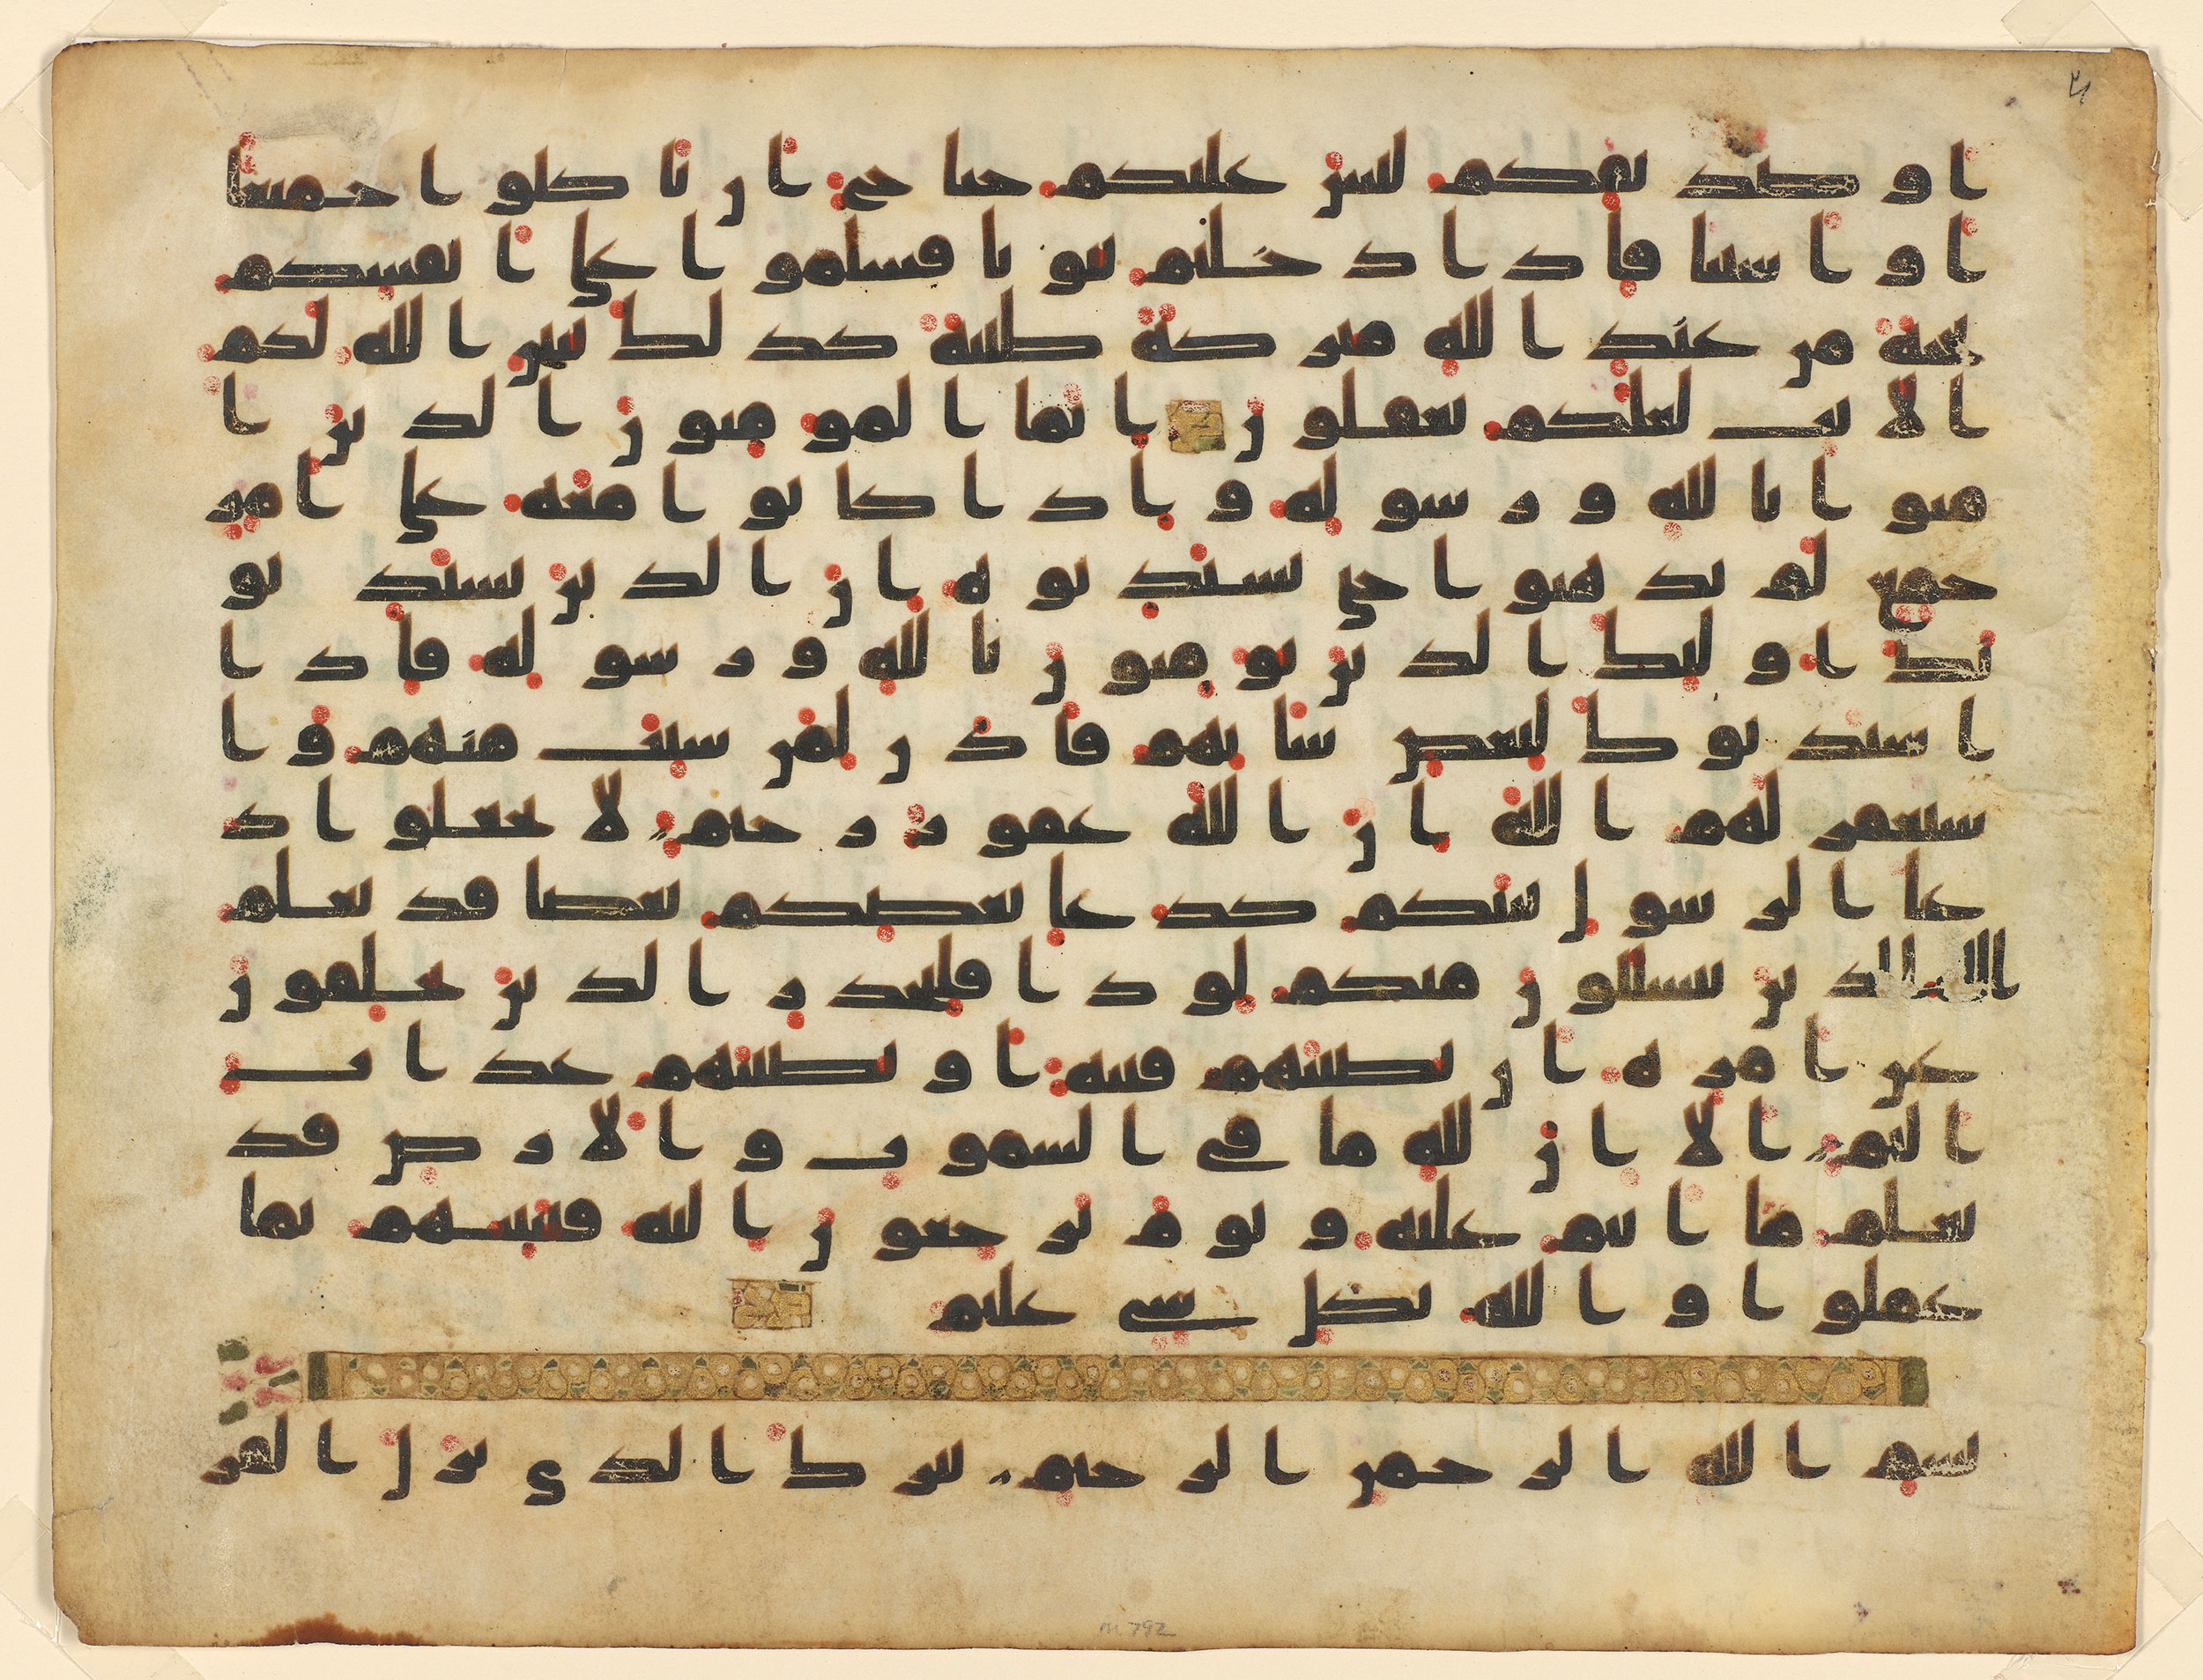 او صديقكم ليس عليكم جناح ان تاكلوا جميعا
او اشتاتا فاذا دخلتم بيوتا فسلموا على انفسكم
تحية من عند الله مبركة طيبة كذلك يبين الله لكم
الايت لعلكم تعقلون انما المومنون الذين ا
منوا بالله ورسوله واذا كانوا معه على امر
جمع لم يذهبوا حتى يستذنوه ان الذين يستذنو
نك اوليك الذين يومنون بالله ورسوله فاذا
استذنوك لبعض شانهم فاذن لمن شيت منهم وا
ستغفر لهم الله ان الله غفور رحيم لا تجعلوا د
عا الرسول بينكم كدعا بعضكم بعضا قد يعلم
الله الذين يتسللون منكم لواذا فليحذر الذين يخلفون
عن امره ان تصيبهم فتنة او يصيبهم عذاب
اليم الا ان لله ما في السموت والارض قد
يعلم ما انتم عليه ويوم يرجعون اليه فينبيهم بما
عملوا والله بكل شي عليم
بسم الله الرحمن الرحيم تبرك الذي نزل الفر
m. 792